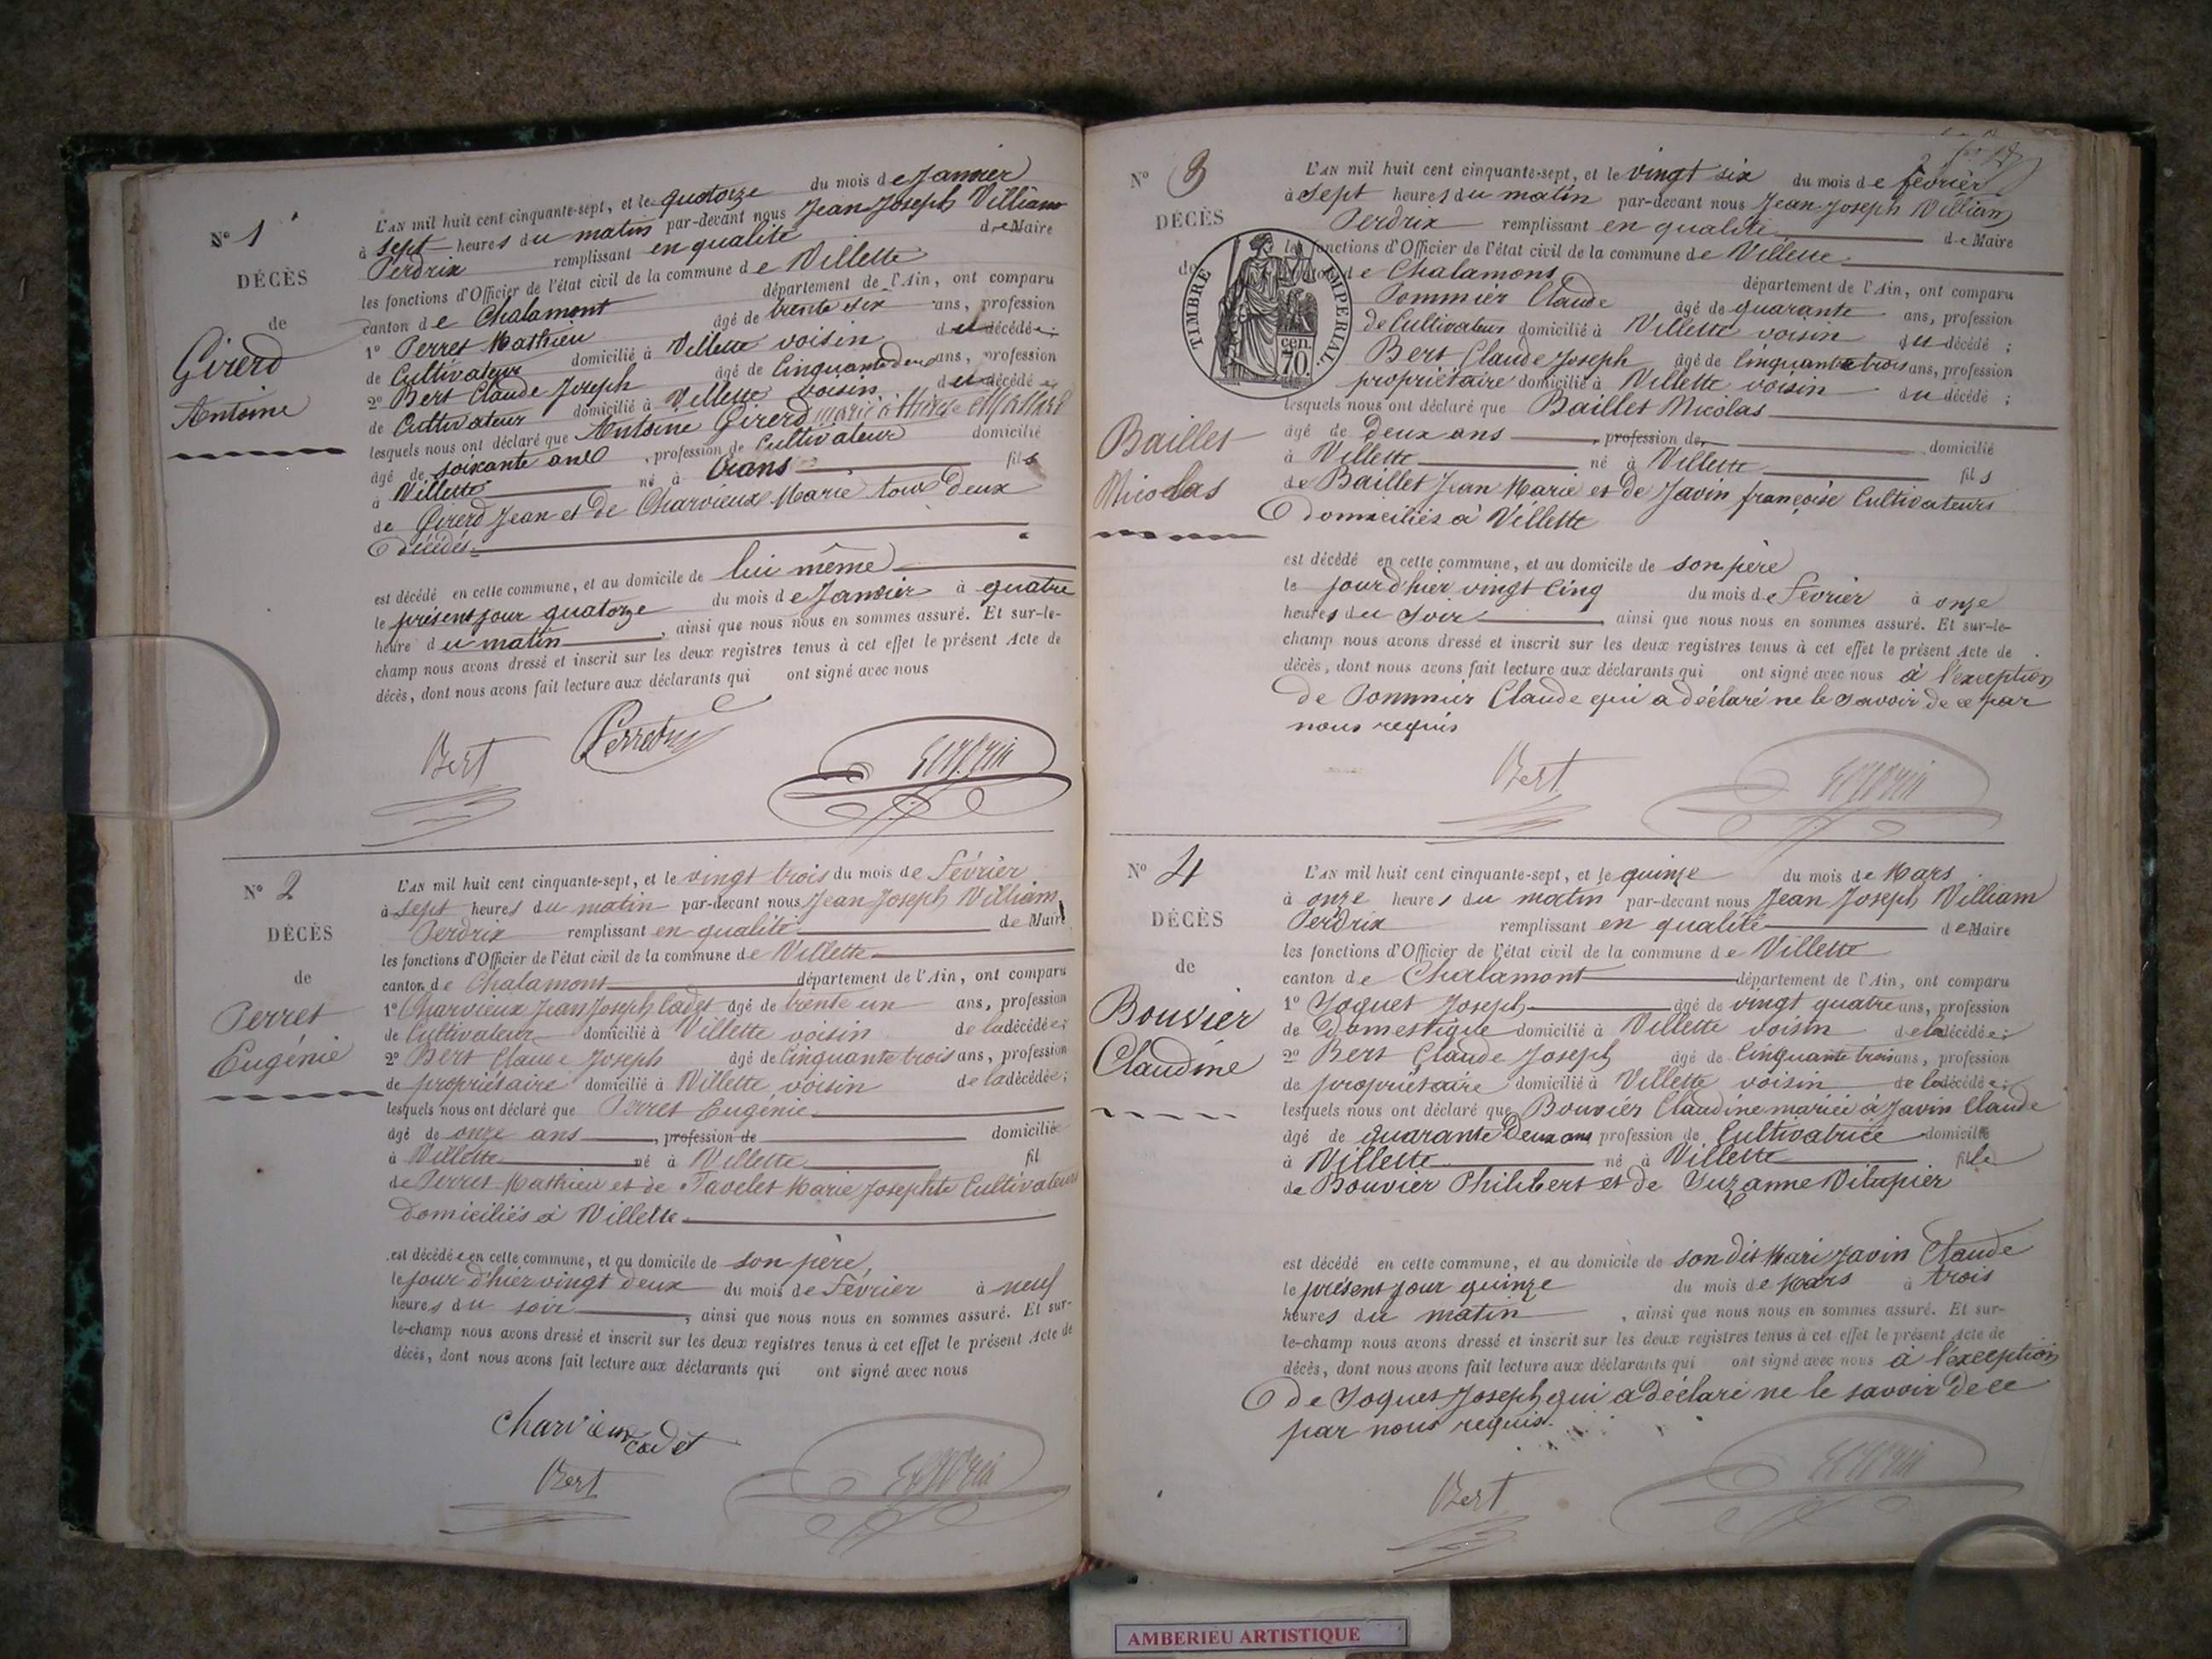 N° 1
DÉCÈS
de
Girerd
Antoine
L'AN mil huit cent cinquante-sept, et le quatorze du mois de Janvier
à sept heures du matin par-devant nous Jean Joseph William
Perdrix remplissant en qualité de Maire
les fonctions d'Officier de l'état civil de la commune de Villette
canton de Chalamont département de l'Ain, ont comparu
1° Perret Mathieu âgé de trente six ans, profession
de Cultivateur domicilié à Villette voisin du décédé;
2° Bert Claude Joseph âgé de Cinquante deux ans, profession
de Cultivateur domicilié à Villette voisin du décédé
lesquels nous ont déclaré que Antoine Girerd marié à
âgé de soixante ans, profession de Cultivateur domicilié
à Villette né à Crans fils
de Girerd Jean et de Charvieux Marie tous deux
Décédés.
est décédé en cette commune, et au domicile de lui même
le présent jour quatorze du mois de Janvier à quatre
heure du matin, ainsi que nous nous en sommes assuré. Et sur-le-
champ nous avons dressé et inscrit sur les deux registres tenus à cet effet le présent Acte de
décès, dont nous avons fait lecture aux déclarants qui ont signé avec nous
Bert Perret
N° 2
DÉCÈS
de
Perret
Eugénie
L'AN mil huit cent cinquante-sept, et le vingt trois du mois de Février
à sept heures du matin par-devant nous Jean Joseph William
Perdrix remplissant en qualité de Maire
les fonctions d'Officier de l'état civil de la commune de Villette
canton de Chalamont département de l'Ain, ont comparu
1° Charvieux Jean Joseph Cadet âgé de trente un ans, profession
de Cultivateur domicilié à Villette voisin de la décédée;
2° Bert Claude Joseph âgé de Cinquante trois ans, profession
de propriétaire domicilié à Villette voisin de la décédée;
lesquels nous ont déclaré que Perret Eugénie
âgé de onze ans, profession de domiciliée
à Villette né à Villette fil
de Perret Mathieu et de Tavelet Marie Josephte Cultivateurs
Domiciliés à Villette
est décédée en cette commune, et au domicile de son père,
le jour d'hier vingt deux du mois de Février à neuf
heures du soir, ainsi que nous nous en sommes assuré. Et sur-
le-champ nous avons dressé et inscrit sur les deux registres tenus à cet effet le présent Acte de
décès, dont nous avons fait lecture aux déclarants qui ont signé avec nous
Charvieux cadet
Bert
N° 3
DÉCÈS
de
TIMBRE IMPERIAL.
cen.
70.
Baillet
Nicolas
L'AN mil huit cent cinquante-sept, et le vingt six du mois de février
à sept heures du matin par-devant nous Jean Joseph William
Perdrix remplissant en qualité de Maire
les fonctions d'Officier de l'état civil de la commune de Villette
canton de Chalamont département de l'Ain, ont comparu
Pommier Claude âgé de quarante ans, profession
de Cultivateur domicilié à Villette voisin du décédé;
Bert Claude Joseph âgé de Cinquante trois ans, profession
propriétaire domicilié à Villette voisin du décédé;
lesquels nous ont déclaré que Baillet Nicolas
âgé de deux ans, profession de domicilié
à Villette né à Villette fils
de Baillet Jean Marie et de Javin françoise Cultivateurs
Domiciliés à Villette
est décédé en cette commune, et au domicile de son père
le jour d'hier vingt Cinq du mois de Février à onze
heures du soir, ainsi que nous nous en sommes assuré. Et sur-le-
champ nous avons dressé et inscrit sur les deux registres tenus à cet effet le présent Acte de
décès, dont nous avons fait lecture aux déclarants qui ont signé avec nous à l'exception
de Pommier Claude qui a déclaré ne le savoir de ce par
nous requis
Bert
N° 4
DÉCÈS
de
Bouvier
Claudine
L'AN mil huit cent cinquante-sept, et le quinze du mois de Mars
à onze heures du matin par-devant nous Jean Joseph William
Perdrix remplissant en qualité de Maire
les fonctions d'Officier de l'état civil de la commune de Villette
canton de Chalamont département de l'Ain, ont comparu
1° Joquet Joseph âgé de vingt quatre ans, profession
de Domestique domicilié à Villette voisin de la décédée;
2° Bert Claude Joseph âgé de Cinquante trois ans, profession
de propriétaire domicilié à Villette voisin de la décédée;
lesquels nous ont déclaré que Bouvier Claudine mariée à Javin Claude
âgé de quarante Deux ans, profession de Cultivatrice domicilié
à Villette né à Villette fille
de Bouvier Philibert et de Suzanne
est décédé en cette commune, et au domicile de son dit Mari Javin Claude
le présent jour quinze du mois de Mars à trois
heures du matin, ainsi que nous nous en sommes assuré. Et sur-
le-champ nous avons dressé et inscrit sur les deux registres tenus à cet effet le présent Acte de
décès, dont nous avons fait lecture aux déclarants qui ont signé avec nous à l'exception
de Joquet Joseph qui a déclaré ne le savoir de ce
par nous requis.
Bert
AMBERIEU ARTISTIQUE